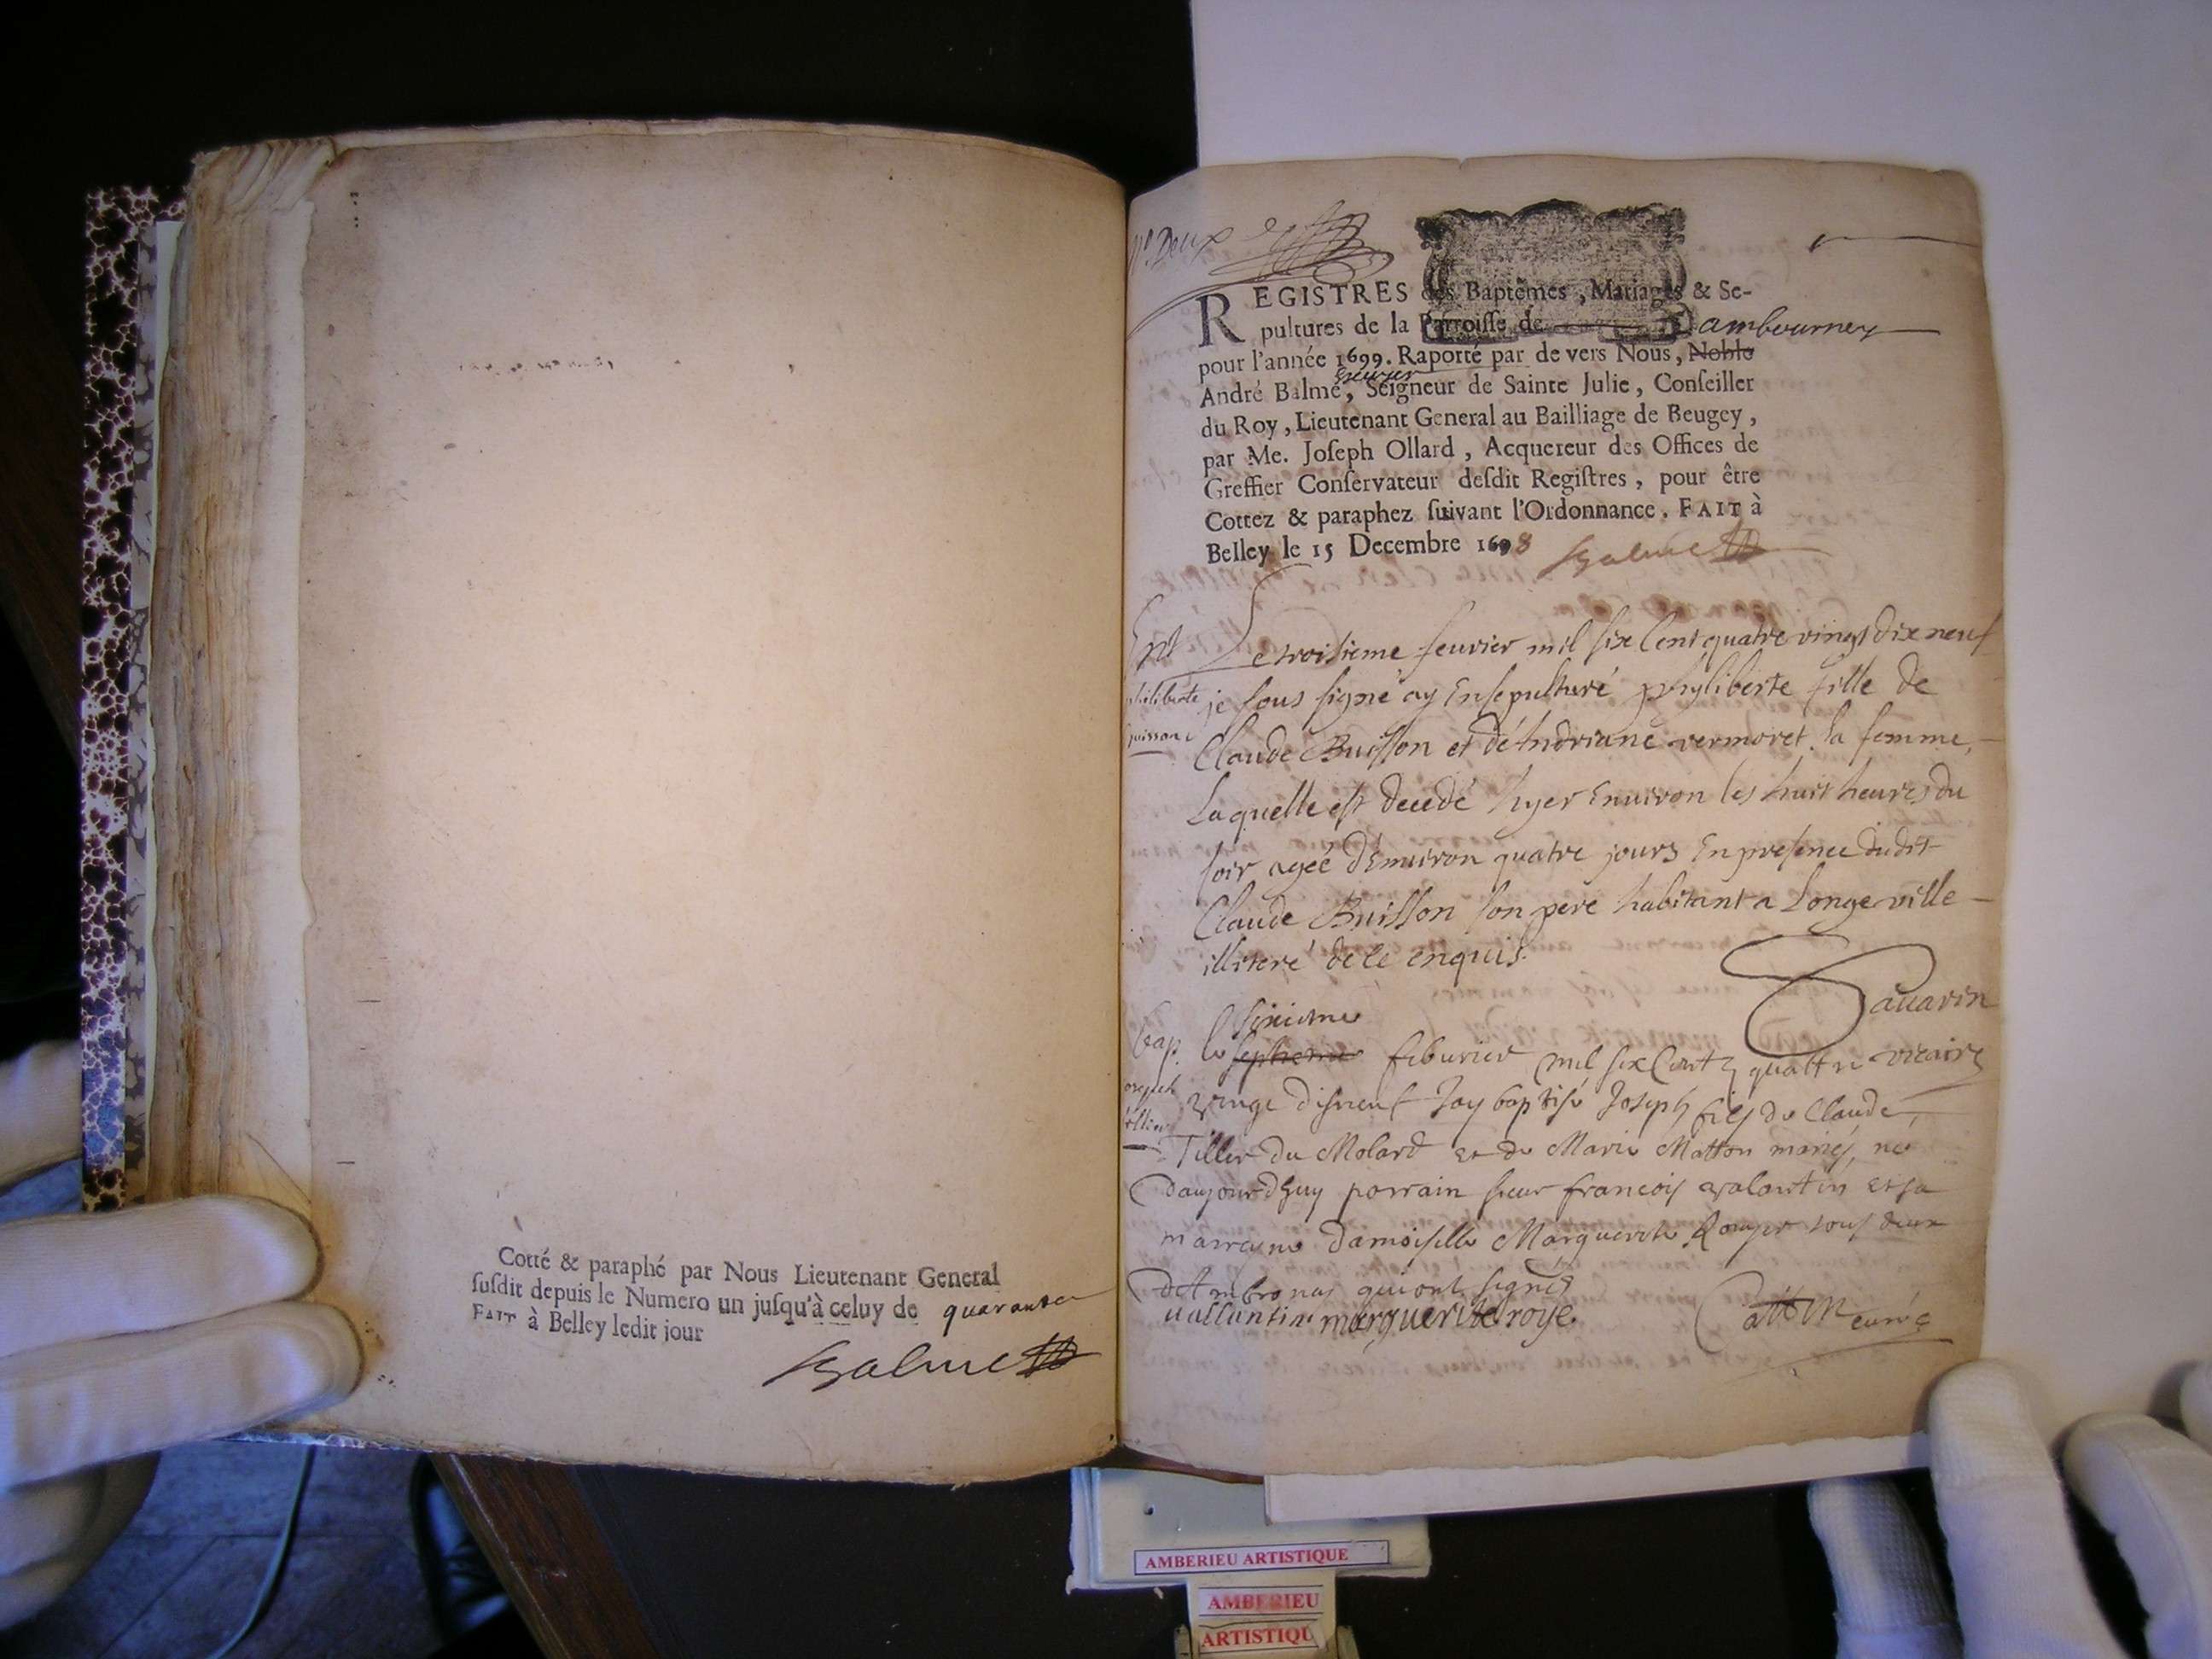 Cotté & paraphé par Nous Lieutenant General
susdit depuis le Numero un jusqu'à celuy de quarante
FAIT à Belley ledit jour
Balme
No. Deux
REGISTRES des Baptêmes, Mariages & Se-
pultures de la Parroisse de Dambournex
pour l'année 1699. Raporté par de vers Nous, Noble
Escuyer
André Balme, Seigneur de Sainte Julie, Conseiller
du Roy, Lieutenant General au Bailliage de Beugey,
par Me. Joseph Ollard, Acquereur des Offices de
Greffier Conservateur desdit Registres, pour être
Cottez & paraphez suivant l'Ordonnance. FAIT à
Belley le 15 Decembre 1698 Balme
Ent
philiberte
buisson
Le troisieme feurier mil six Cent quatre vingt dix neuf
je sous signé ay Ensepulturé phyliberte fille de
Claude Buisson et d'Andriane vermoret sa femme,
Laquelle est decedé hyer Enuiron les huit heures du
soir ageé d'Enuiron quatre jours En presence dudit
Claude Buisson son pere habitant a Longeville
illiteré de ce enquis.
Sauarin
vicaire
bap.
Joseph
tillier
sixieme
le septieme feburier mil six Cent quattre
vingt disneuf Jay baptisé Joseph fils de Claude
Tillier du Molard et de Marie Matton mariés, né
daujourdhuy parrain sieur francois valantin et sa
marrayne damoiselle Marguerite Rouyer tous deux
dAmbronay qui ont signés
uallantin marguerite roye
Cattin curé
AMBERIEU ARTISTIQUE
AMBERIEU
ARTISTIQU